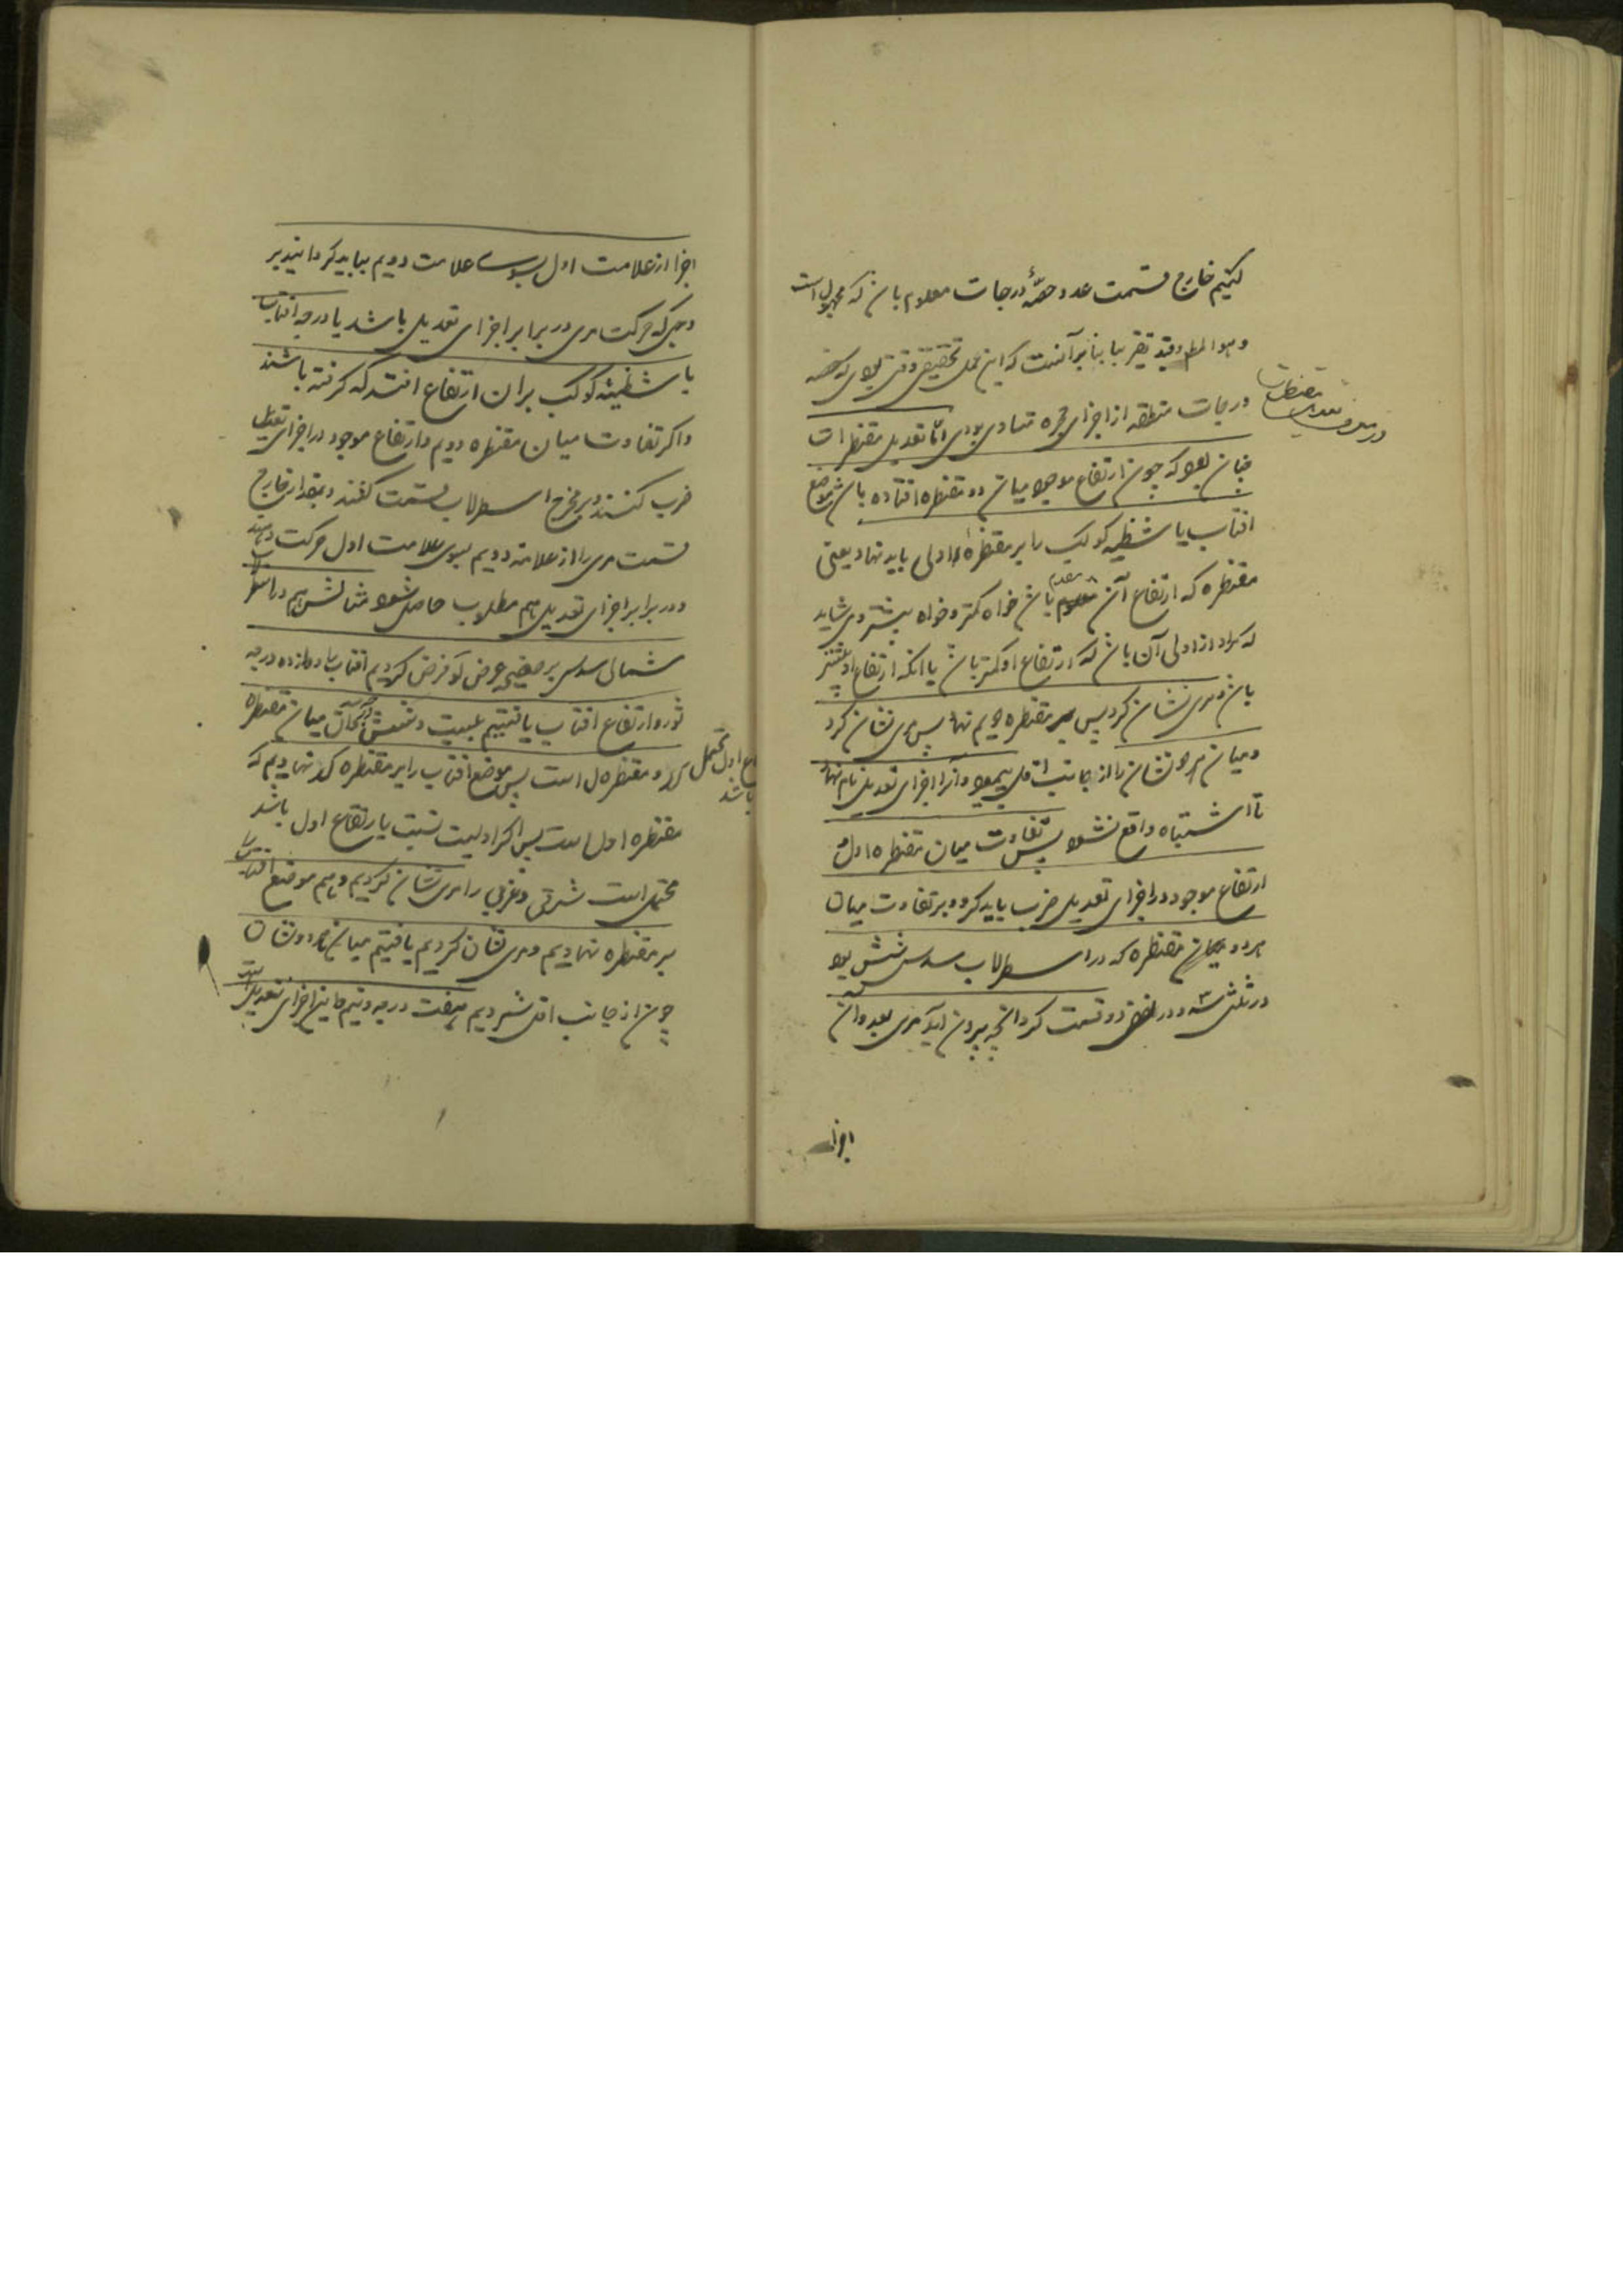 کنیم خارج قسمت عدد حصّهٔ درجات معلوم باشد که مجهول است
و هوالمطلوب و قید تقریبا بنابر آنست که این عمل تحقیقی وقتی بودی که حصه
درجات منطقه از اجزای حجره متساوی بودی امّا تعدیل مقنطرات
چنان بود که چون ارتفاع موجود میان دو مقنطره افتاده باشد موضع
افتاب یا شظیه کوکب را بر مقنطرهٔ اولی باید نهاد یعنی
مقنطره که ارتفاع آن مقدم باشد خواه کمتر و خواه بیشتر و می شاید
که مراد از اولی آن باشد که ارتفاع او کمتر باشد یا آنکه ارتفاع او بیشتر
باشد و مری نشان کرد پس بر مقنطره دویم نهاد پس مری نشان کرد
و میان هر دو نشان را از جانب اقل بپیمود و آنرا اجزای تعدیل نام نهاد
تا اشتباه واقع نشود پس تفاوت میان مقنطره اول و
ارتفاع موجود در اجزای تعدیل ضرب باید کرد و بر تفاوت میان
هر دو مقنطره که در اسطرلاب سدسی شش بود
در ثلثی سه و در نصفی دو قسمت کرد آنچه بیرون آید مری بعدد آن
اجزا
در میان تعدیل مقنطرات
اجزا از علامت اول بسوی علامت دویم بباید گردانید بر
وجهی که حرکت مری در برابر اجزای تعدیل باشد یا درجه افتاب
یا شظیهٔ کوکب بران ارتفاع افتد که گرفته باشند
و اگر تفاوت میان مقنطره دویم و ارتفاع موجود در اجزای تعدیل
ضرب کنند و بر مخرج اسطرلاب قسمت کنند و بمقدار خارج
قسمت مری را از علامه دویم بسوی علامت اول حرکت دهند
و در برابر اجزای تعدیل هم مطلوب حاصل شود مثالش هم در اسطرلاب
شمالی سدسی بر صفیحه عرض لو فرض کردیم افتاب بدوازده درجه
ثور و ارتفاع افتاب یافتیم بیست و شش درجه و آن میان مقنطره
کد و مقنطره ل است پس موضع افتاب را بر مقنطره کد نهادیم که
مقنطره اول است پس اگر اولیت نسبت با ارتفاع اول باشد
محتمل است شرقی و غربی را مری نشان کردیم و هم موضع افتاب
بر مقنطره نهادیم و مری نشان کردیم یافتیم میان هر دو نشان
چون از جانب اقل شمردیم هفت درجه و نیم و این اجزای تعدیل است